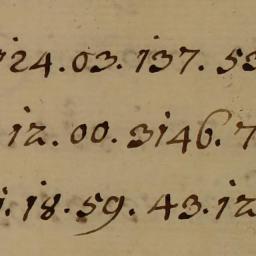 124.03.137.53
12.00.3146.7
1.18.59.43.12